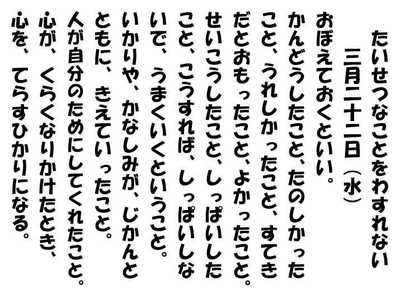 たいせつなことをわすれない
三月二十二日（水）
おぼえておくといい。
かんどうしたこと、たのしかった
こと、うれしかったこと、すてき
だとおもったこと、よかったこと。
せいこうしたこと、しっぱいした
こと、こうすれば、しっぱいしな
いで、うまくいくということ。
いかりや、かなしみが、じかんと
ともに、きえていったこと。
人が自分のためにしてくれたこと。
心が、くらくなりかけたとき、
心を、てらすひかりになる。